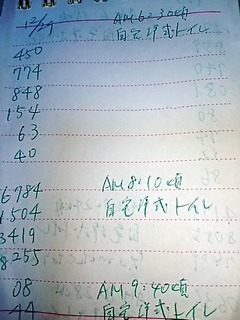 12/29 AM6:30頃
自宅洋式トイレ
450
774
848
154
63
40
6784 AM8:10頃
1504 自宅洋式トイレ
3419
8255
08 AM9:40頃
44 自宅洋式トイレ